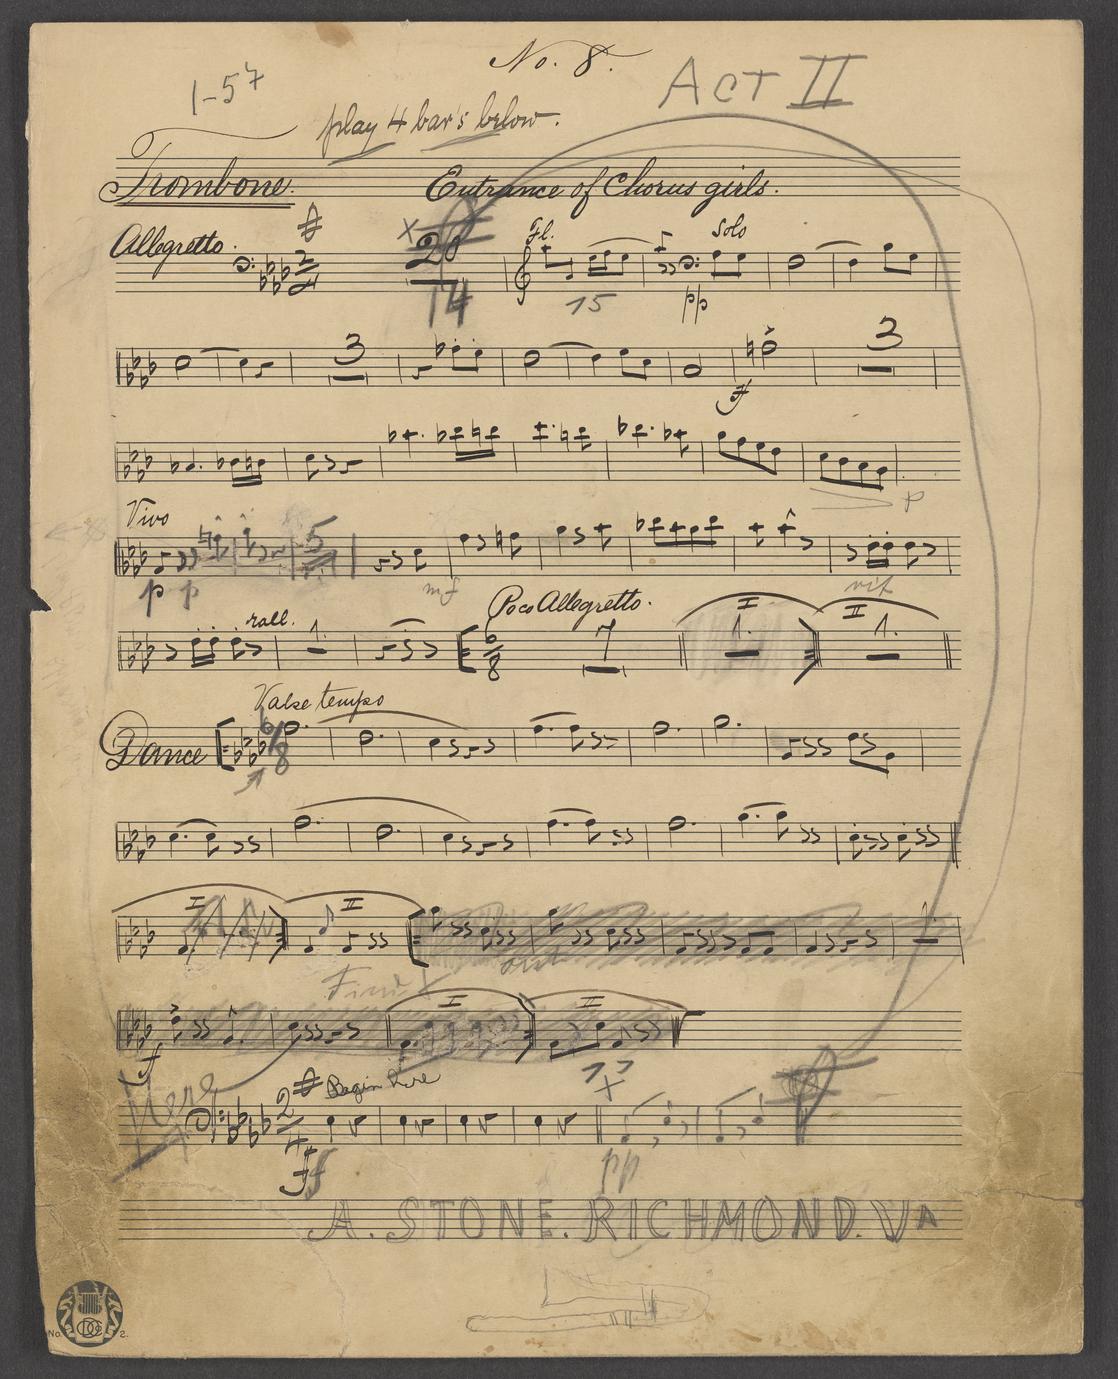 No. 8.
1-57
ACT II
play 4 bar's below.
Trombone.
Entrance of Chorus girls.
Allegretto.
20
Fl.
Solo
14
15
pp
3
3
ff
p
Vivo
5
p p
mf
rall.
Poco Allegretto.
I
II
1.
6/8
7
1.
1.
Valse tempo
Dance
6/8
I
II
Fine
I
II
f
Here
Begin here
2/4
ff
pp
A. STONE. RICHMOND. VA
No. 2.